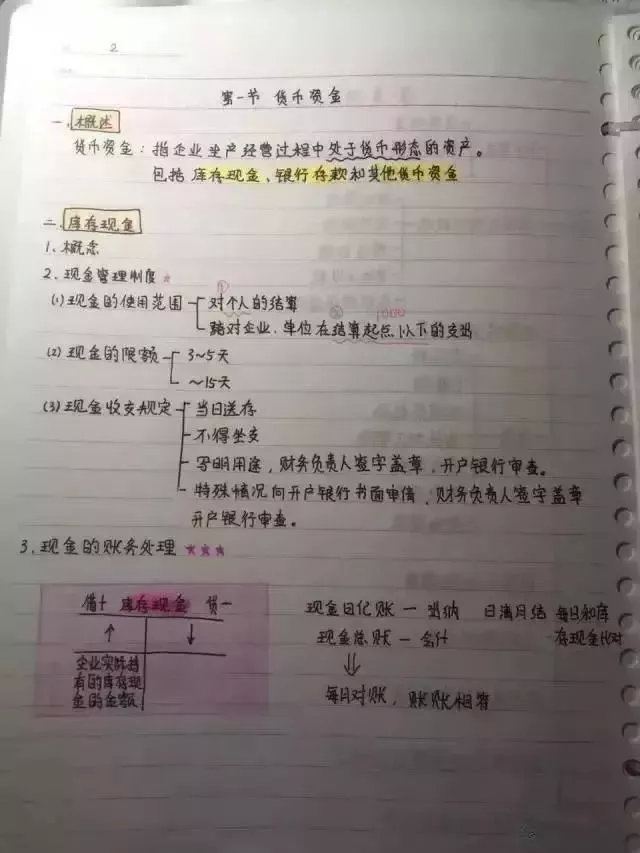 2
第一节 货币资金
一、概述
货币资金：指企业生产经营过程中处于货币形态的资产。
包括库存现金、银行存款和其他货币资金
二、库存现金
1、概念
2、现金管理制度 ★
① 
(1)现金的使用范围 对个人的结算
② 1000
对企业、单位在结算起点以下的支出
(2)现金的限额 3~5天
~15天
(3)现金收支规定 当日送存
不得坐支
写明用途，财务负责人签字盖章，开户银行审查。
特殊情况向开户银行书面申请，财务负责人签字盖章
开户银行审查。
3、现金的账务处理 ★★★
借+ 库存现金 贷-
↑ ↓
企业实际持
有的库存现
金的金额
现金日记账 — 出纳 日清月结 每日和库
现金总账 — 会计 存现金比对
⇓
每月对账，账账相符